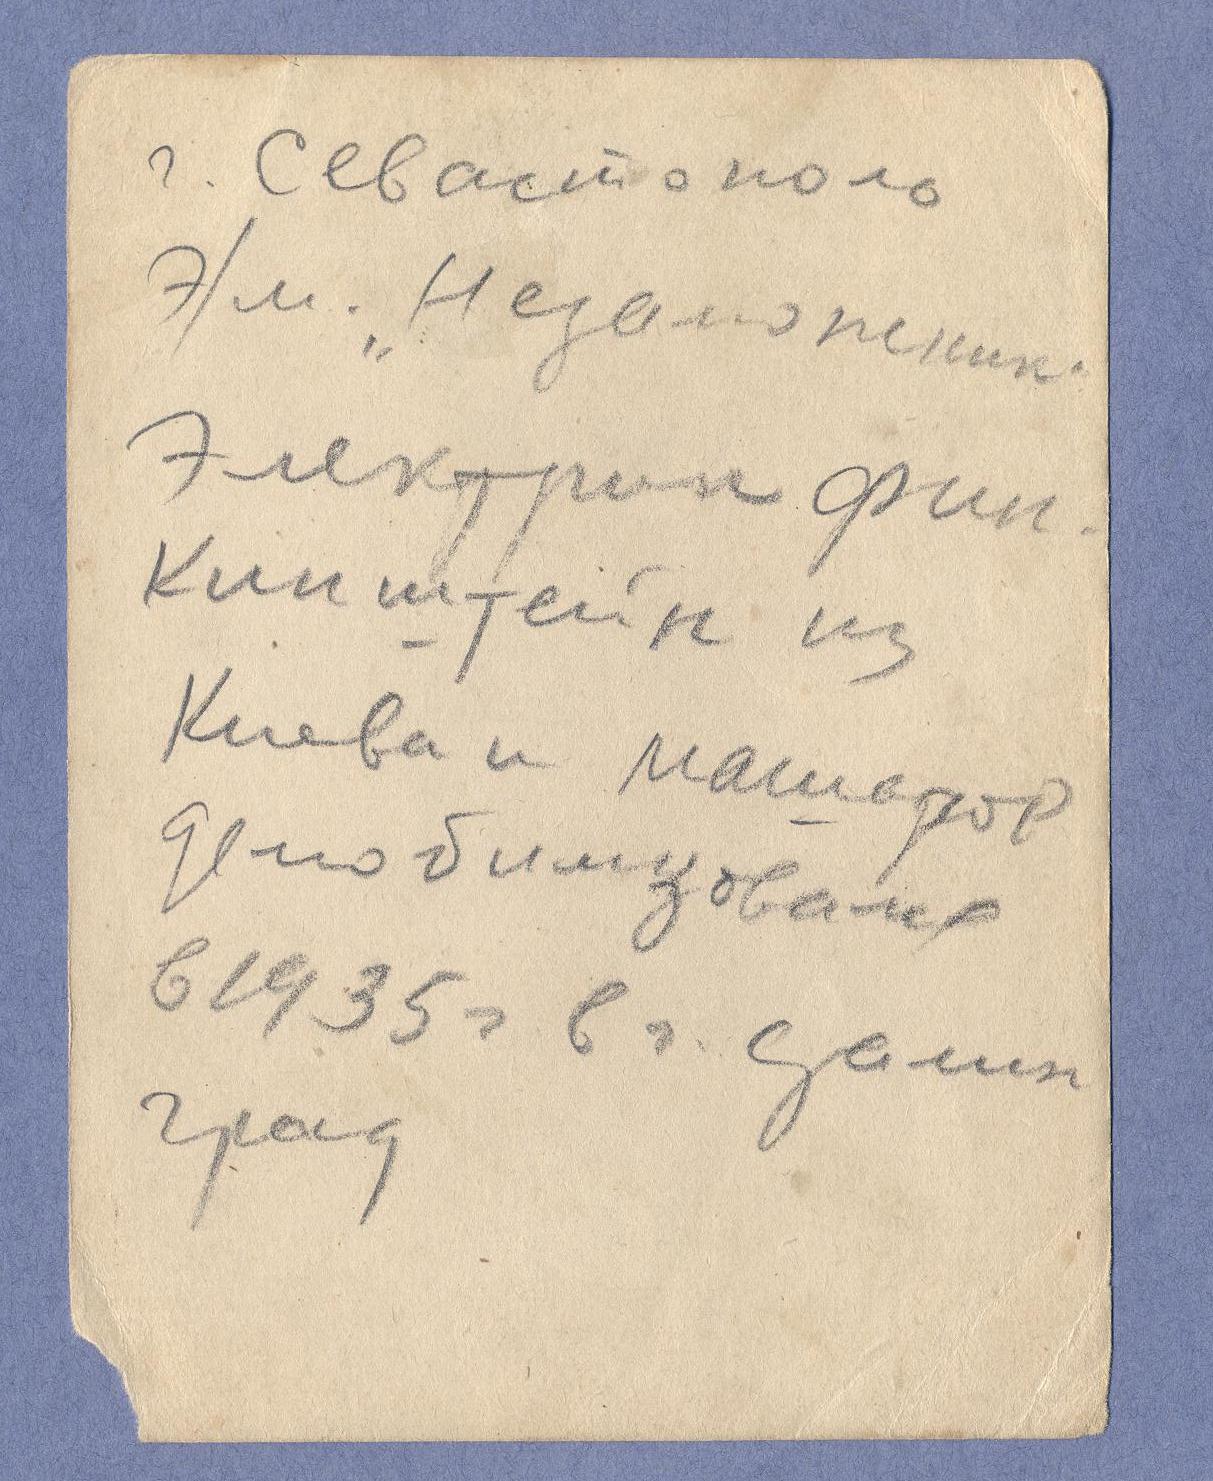 г. Севастополь
Э/м. „Незаможник"
Электрик Фин.
Кинштейн из
Киева и
демобилизовани
в 1935 г в г.
град